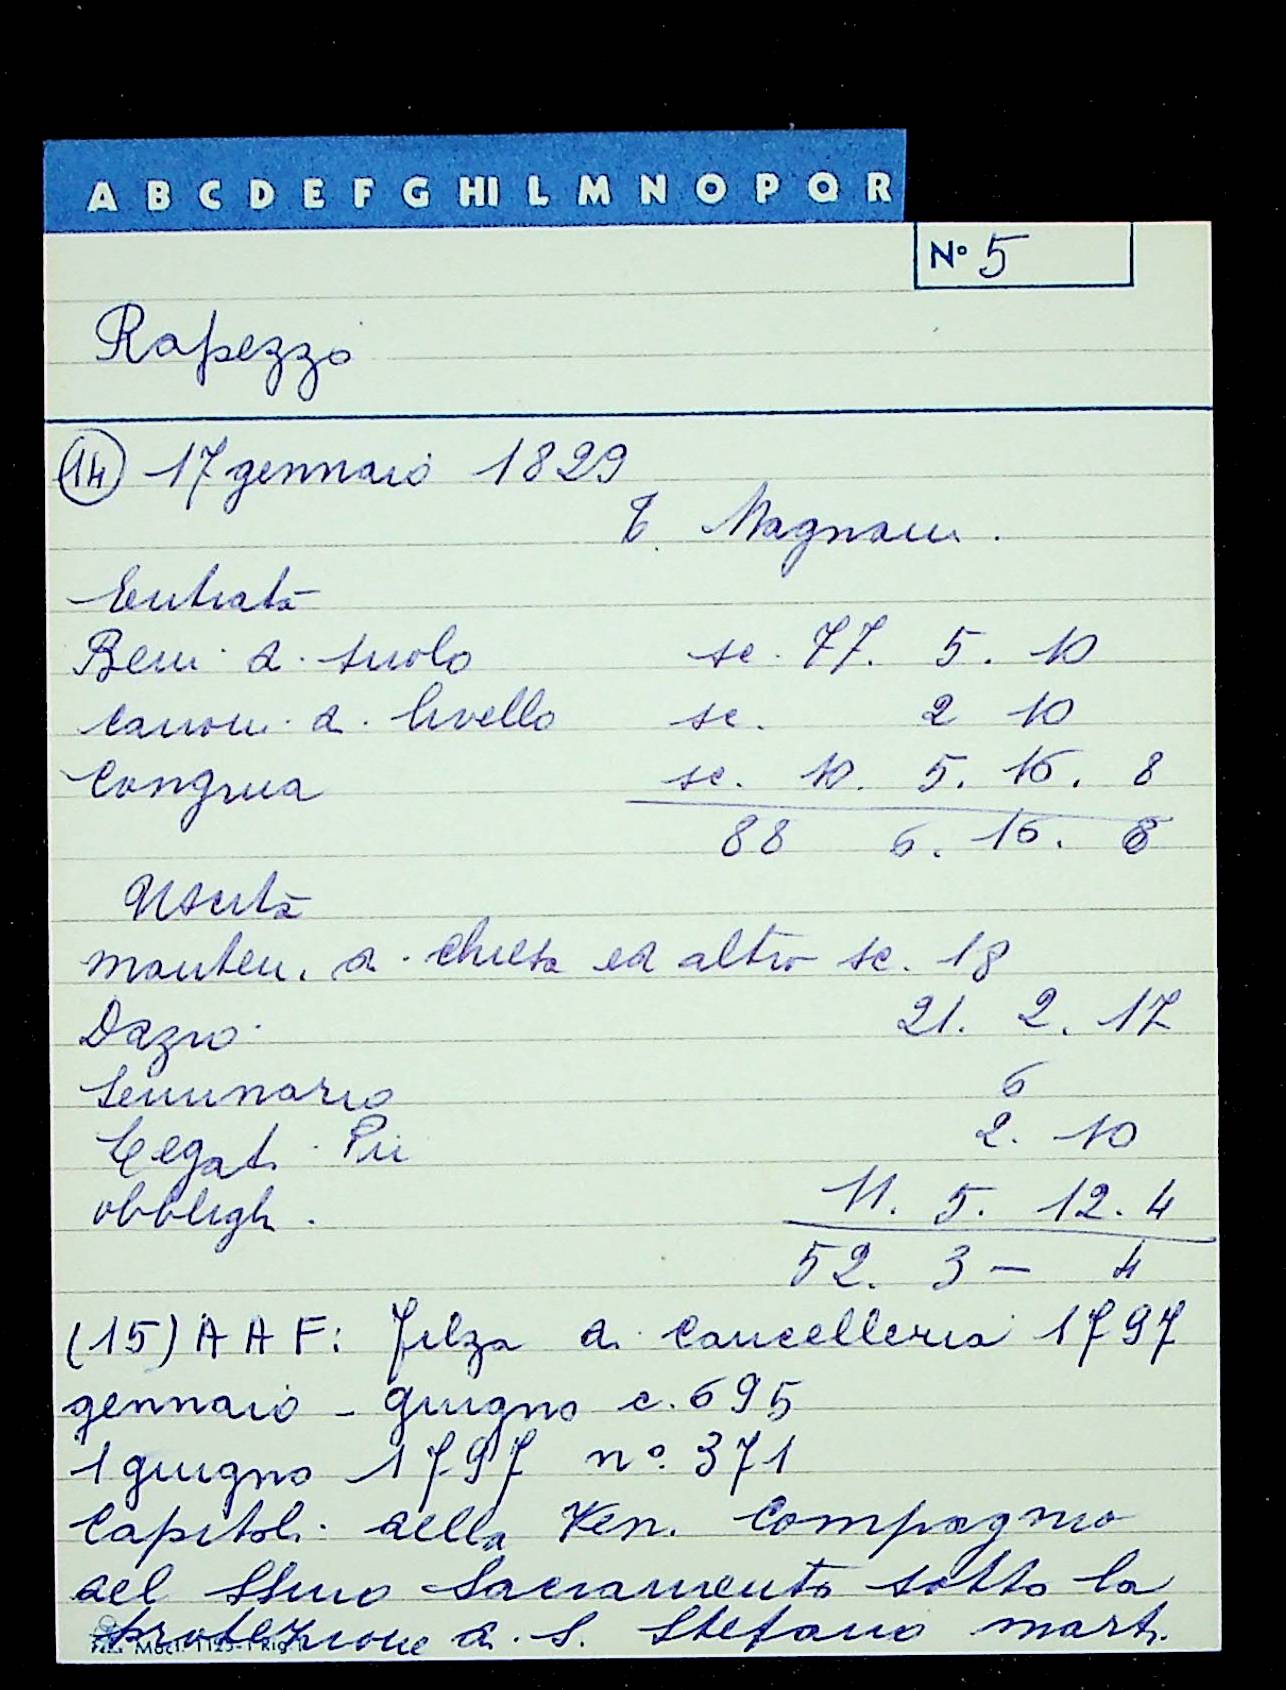 A B C D E F G HI L M N O P Q R
N° 5
Rapezzo
(14) 17 gennaio 1829
E. Magnani.
Entrata
Beni di suolo sc. 77. 5. 10
canoni di livello sc. 2 10
Congrua sc. 10. 5. 16. 8
88 6. 16. 8
Uscita
manten. di chiesa ed altro sc. 18
Dazio 21. 2. 17
Seminario 6
Legati Pii 2. 10
obblighi. 11. 5. 12. 4
52. 3 — 4
(15) A A F: Filza di Cancelleria 1797
gennaio - giugno c. 695
1 giugno 1797 n° 371
Capitoli della Ven. Compagnia
del SSmo Sacramento sotto la
protezione di S. Stefano mart.